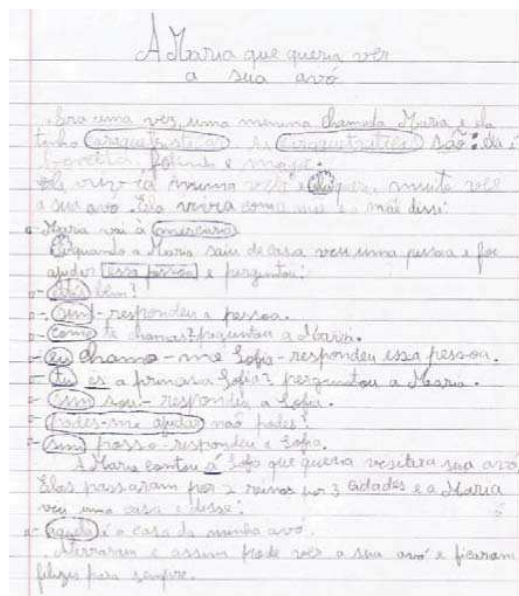 A Maria que queria ver
a sua avó
Era uma vez, uma menina chamada Maria e ela
tinha as são: ela é
bonita, e magra.
muito ver
a sua avó. Ela vivia com a mãe disse:
- Maria vai à
quando a Maria saiu de casa veu uma pessoa e foi
ajudar essa pessoa e perguntou:
- bem?
- sim - respondeu a pessoa.
- como te chamas? perguntou a Maria.
- eu chamo-me Sofia - respondeu essa pessoa.
- tu és a Sofia? perguntou a Maria.
- sim sou - respondeu a Sofia.
- podes-me ajudar não podes?
- sim posso - respondeu a Sofia.
A Maria contou á Sofia que queria sua avó
Elas passaram por 2 reinos por 3 cidades e a Maria
veu uma casa e disse:
- aquela é a casa da minha avó.
e assim pode ver a sua avó e ficaram
felizes para sempre.